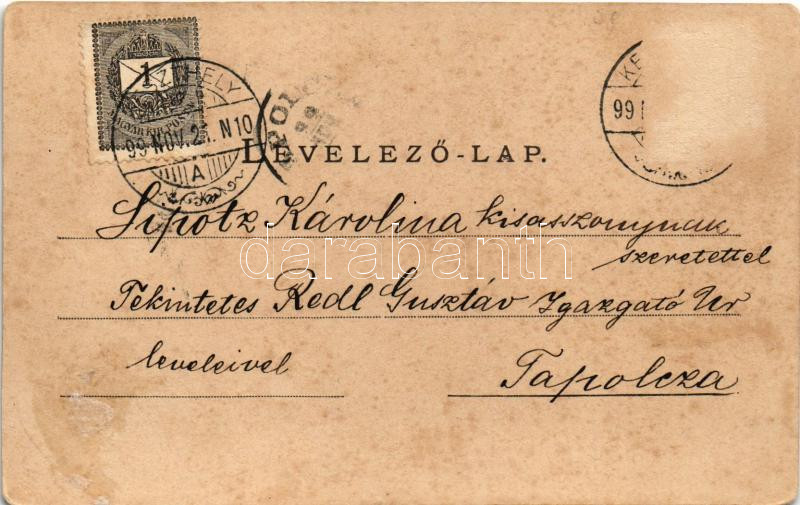 1
MAGYAR KIR. POSTA
99 NOV. 21. N10
A
KE
99
LEVELEZŐ-LAP.
Lipotz Károlina kisasszonynak
szeretettel
Tekintetes Redl Gusztáv Igazgató Ur
leveleivel
Tapolcza
darabanth